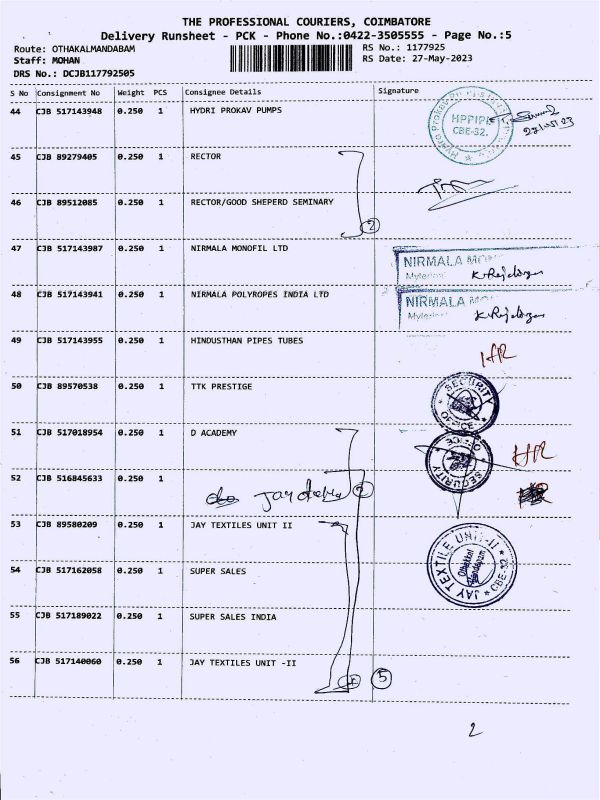 THE PROFESSIONAL COURIERS, COIMBATORE
Delivery Runsheet - PCK - Phone No.:0422-3505555 - Page No.:5
Route: OTHAKALMANDABAM
RS No.: 1177925
Staff: MOHAN
RS Date: 27-May-2023
DRS No.: DCJB117792505
S No Consignment No Weight PCS Consignee Details Signature
44 CJB 517143948 0.250 1 HYDRI PROKAV PUMPS
HPPIPL
CBE-32.
45 CJB 89279405 0.250 1 RECTOR
46 CJB 89512085 0.250 1 RECTOR/GOOD SHEPERD SEMINARY
2
47 CJB 517143987 0.250 1 NIRMALA MONOFIL LTD
NIRMALA MO
48 CJB 517143941 0.250 1 NIRMALA POLYROPES INDIA LTD
NIRMALA MO
49 CJB 517143955 0.250 1 HINDUSTHAN PIPES TUBES
50 CJB 89570538 0.250 1 TTK PRESTIGE
SECURITY
OFFICE
51 CJB 517018954 0.250 1 D ACADEMY
OFFICE
SECURITY
52 CJB 516845633 0.250 1
53 CJB 89580209 0.250 1 JAY TEXTILES UNIT II
JAY TEXTILE UNIT-II
CBE-32
Othakkal
Mandapam
54 CJB 517162058 0.250 1 SUPER SALES
55 CJB 517189022 0.250 1 SUPER SALES INDIA
56 CJB 517140060 0.250 1 JAY TEXTILES UNIT -II
5
2